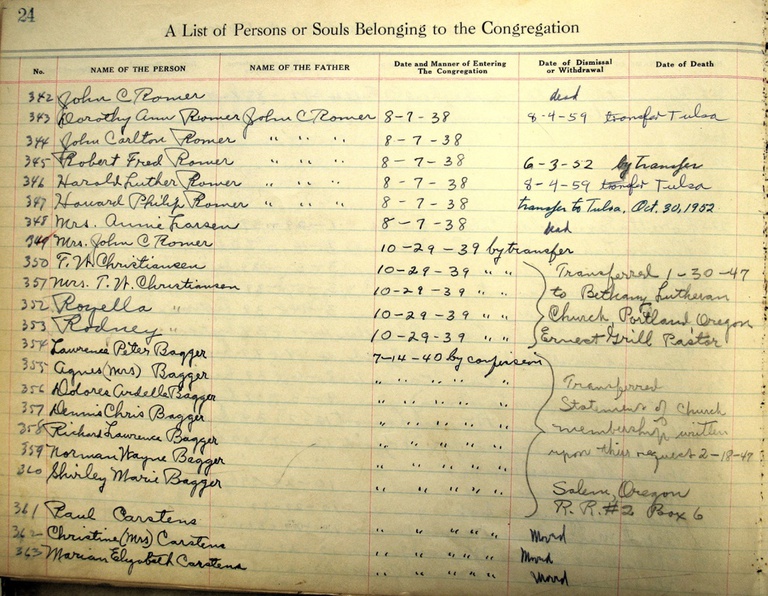 24
A List of Persons or Souls Belonging to the Congregation
No. NAME OF THE PERSON NAME OF THE FATHER Date and Manner of Entering The Congregation Date of Dismissal or Withdrawal Date of Death
342 John C Romer dead
343 Dorothy Ann Romer John C Romer 8-7-38 8-4-59 transfer Tulsa
344 John Carlton Romer " " " 8-7-38
345 Robert Fred Romer " " " 8-7-38 6-3-52 by transfer
346 Harold Luther Romer " " " 8-7-38 8-4-59 transfer Tulsa
347 Howard Philip Romer " " " 8-7-38 transfer to Tulsa, Oct. 30, 1952
348 Mrs. Annie Larsen 8-7-38 dead
349 Mrs. John C Romer 10-29-39 by transfer
350 T. W. Christiansen 10-29-39 " " Transferred 1-30-47
351 Mrs. T. W. Christiansen 10-29-39 " " to Bethany Lutheran
352 Royella " 10-29-39 " " Church, Portland, Oregon
353 Rodney " 10-29-39 " " Ernest Grill Pastor
354 Lawrence Peter Bagger 7-14-40 by confession
355 Agnes (Mrs) Bagger " " " " " Transferred
356 Dolores Ardella Bagger " " " " " Statements of church
357 Dennis Chris Bagger " " " " " membership written
358 Richard Lawrence Bagger " " " " " upon their request 2-18-47
359 Norman Wayne Bagger " " " " "
360 Shirley Marie Bagger " " " " " Salem, Oregon
R. R. #2 Box 6
361 Paul Carstens " " " " " Moved
362 Christine (Mrs) Carstens " " " " " Moved
363 Marian Elizabeth Carstens " " " " " Moved